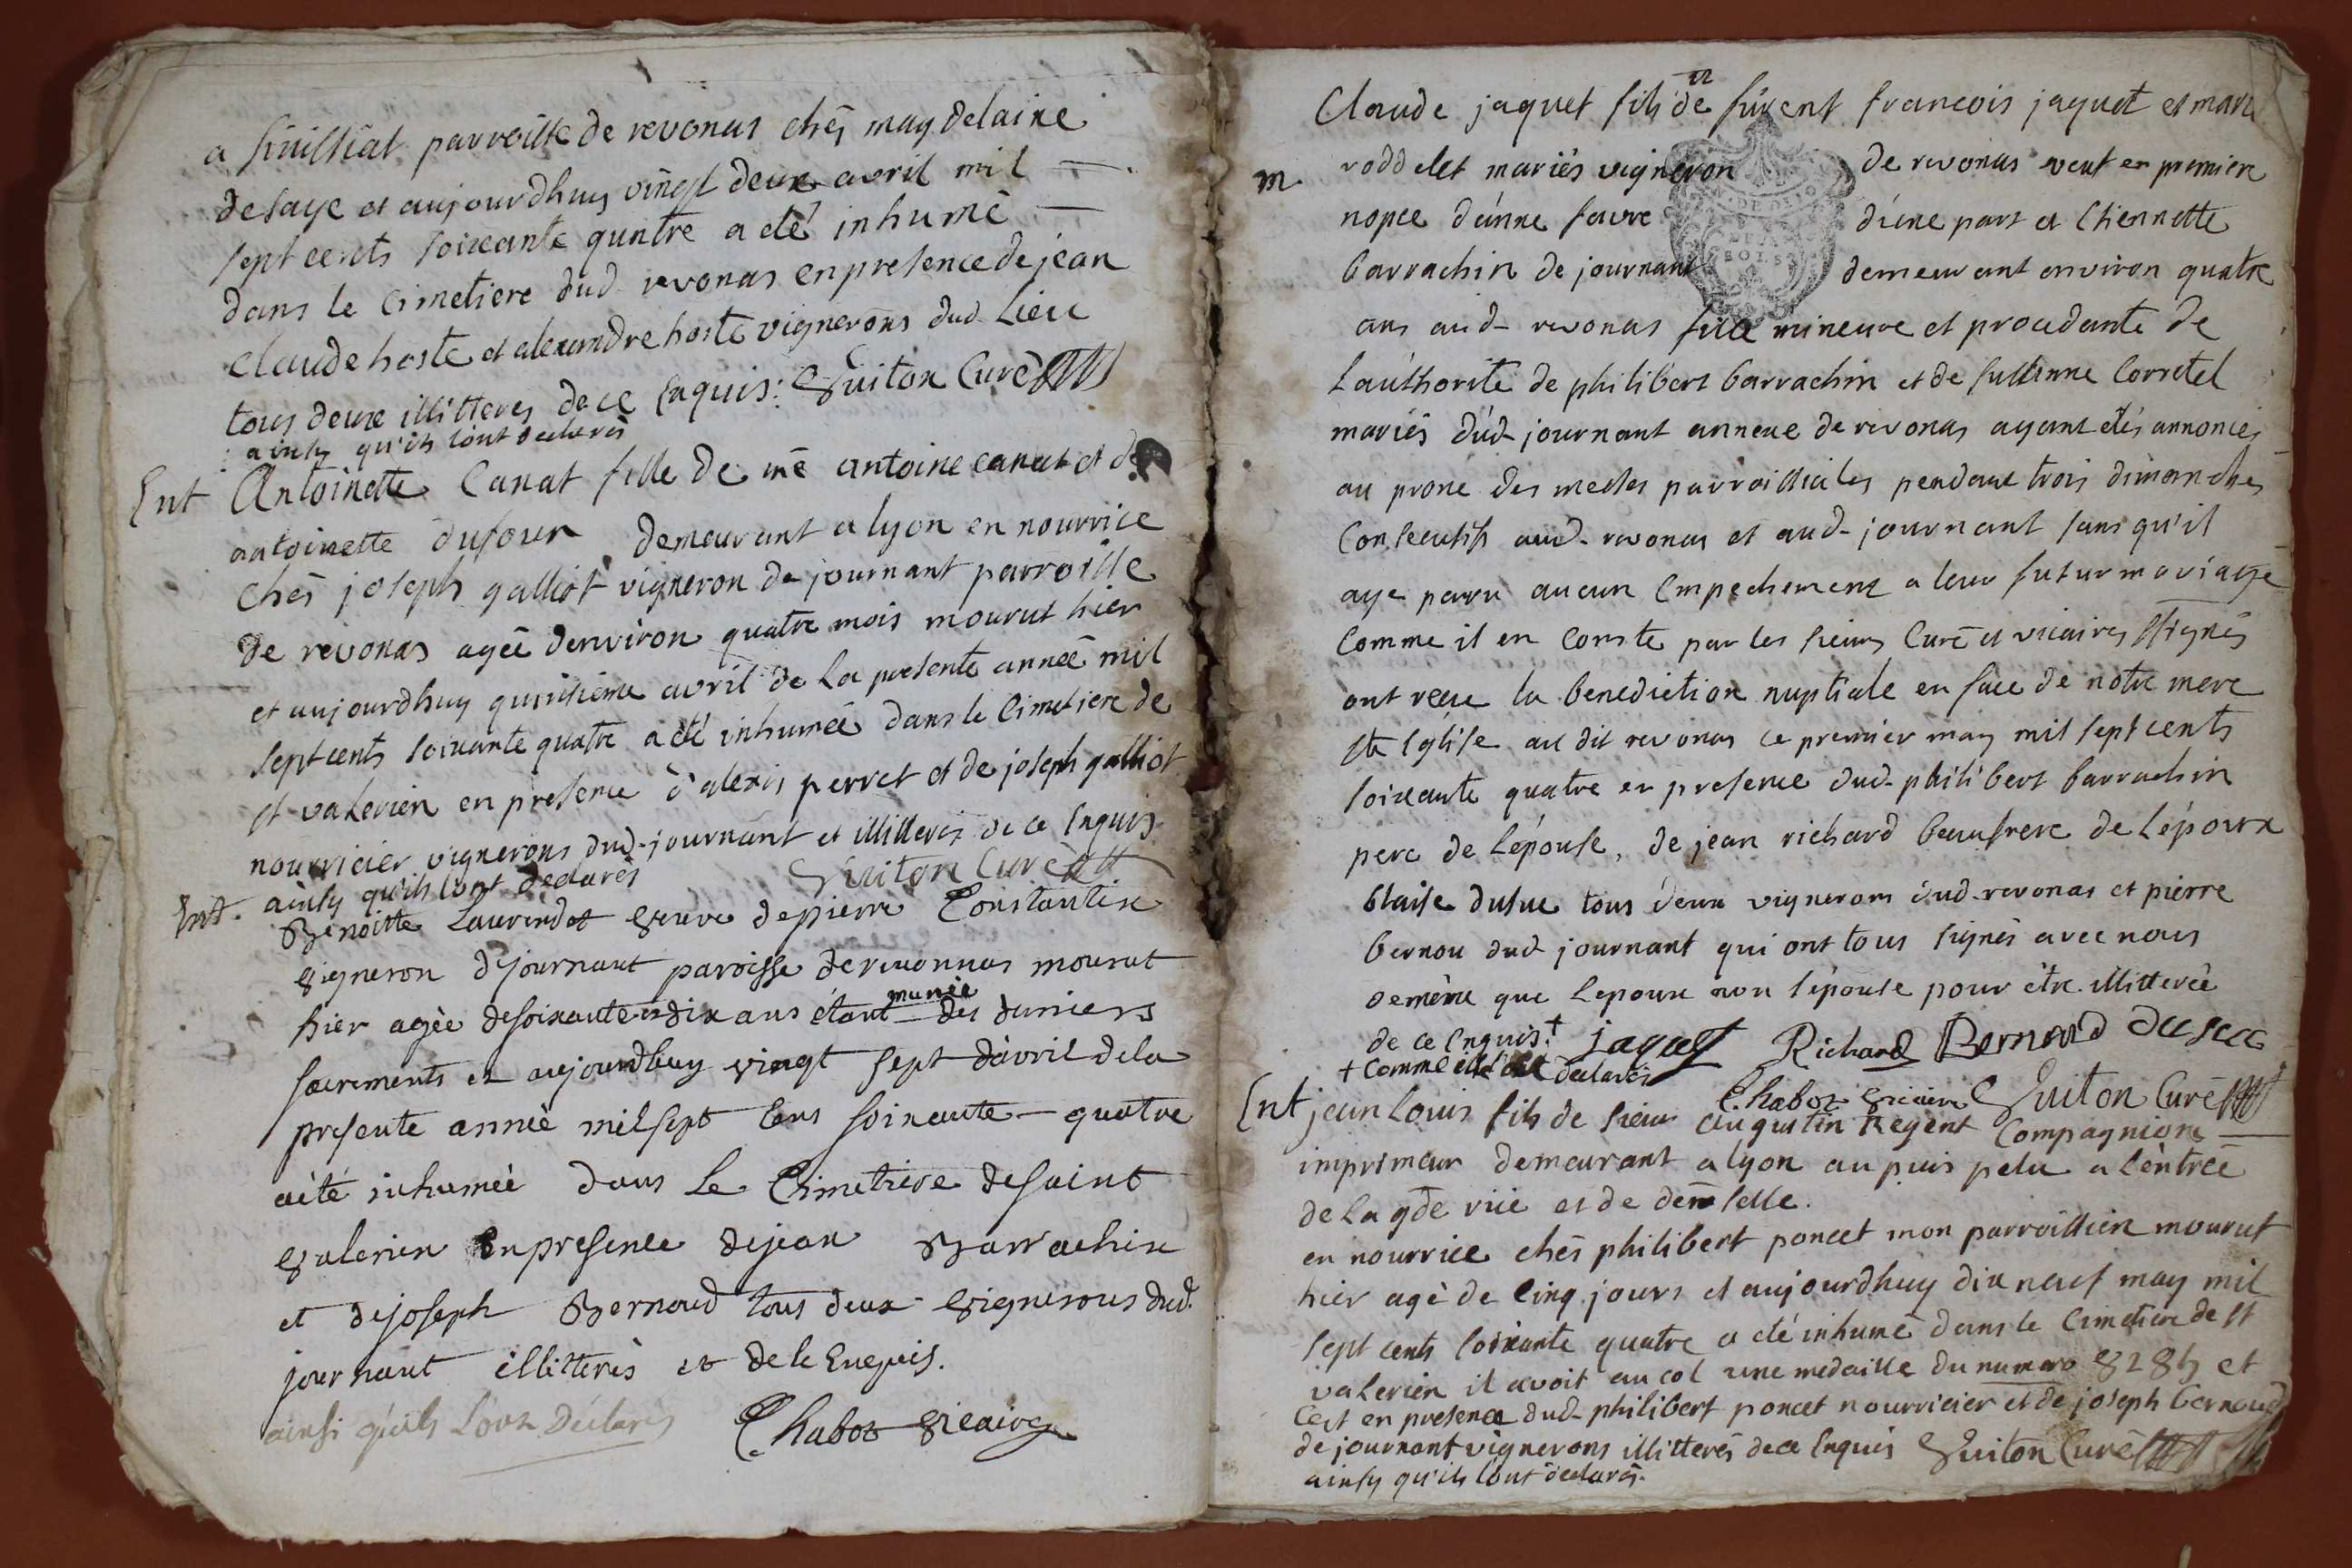 a suilliat parroisse de revonas chés magdelaine
desaye et aujourdhuy vingt deux avril mil
sept cents soixante quatre a eté inhumé
dans le cimetiere dud revonas en presence de jean
claude hoste et alexandre hoste vignerons dud lieu
tous deux illitteres de ce enquis : Guiton Curé
: ainsy qu'ils lont declarés
Ent Antoinette Canat fille de me antoine canat et de
antoinette dufour demeurant a lyon en nourrice
chés joseph galliot vigneron de journant parroisse
de revonas agée denviron quatre mois mourut hier
et aujourdhuy quinsieme avril de la presente année mil
sept cents soixante quatre a eté inhumée dans le cimetiere de
st valerien en presence d'alexis perret et de joseph galliot
nourricier vignerons dud-journant et illitteres de ce enquis
ainsy qu'ils lont declarés Guiton Curé
Ent. Benoitte Laurendot veuve de pierre Constantin
vigneron de journant paroisse de revonnas mourut
hier agée de soixante et dix ans étant munie des derniers
sacrements et aujourdhuy vingt sept d'avril de la
presente année mil sept cens soixante - quatre
a été inhumée dans Le Cimetiere de saint
valerien en presence de jean Barrachin
et de joseph Bernoud tous deux vignerons dud.
journant illitterés et de ce Enquis.
ainsi qu'ils L'ont Déclarés Chabot vicaire
Claude jaquet fils de furent francois jaquet et marie
m. roddelet mariés vigneron de revonas veuf en premiere
nopce d'anne favre d'une part et Etiennette
barrachin de journant demeurant environ quatre
ans aud- revonas fille mineure et procedante de
l'authorite de philibert barrachin et de susanne Corretel
mariés dud journant annexe de revonas ayant etés annoncés
au prone des messes parroissiales pendant trois dimanches
consecutifs aud- revonas et aud- journant sans qu'il
aye paru aucun empechement a leur futur mariage
comme il en conste par les sieurs curé et vicaires ssignés
ont reçue la benediction nuptiale en face de notre mere
ste eglise au dit revonas ce premier may mil sept cents
soixante quatre en presence dud- philibert barrachin
pere de l'épouse, de jean richard beaufrere de l'époux
blaise dusuc tous deux vignerons dud-revonas et pierre
bernou dud journant qui ont tous signés avec nous
de même que lepoux non l'épouse pour être illitterée
de ce enquis + jaquet Richard Bernoud dusuc
+ comme elle l'a declarée Chabot vicaire Guiton Curé
Ent jean louis fils de sieur augustin Regent Compagnions
imprimeur demeurant a lyon au puis pelu a l'entrée
de la gde rüe et de demselle.
en nourrice chés philibert poncet mon parroissien mourut
hier agé de cinq jours et aujourdhuy dix neuf may mil
sept cents soixante quatre a eté inhumé dans le cimetiere de st
valerien il avoit au col une medaille du numero et
c'est en presence dud- philibert poncet nourricier et de joseph bernoud
de journant vignerons illitterés de ce enquis Guiton Curé
ainsy qu'ils l'ont declarés.